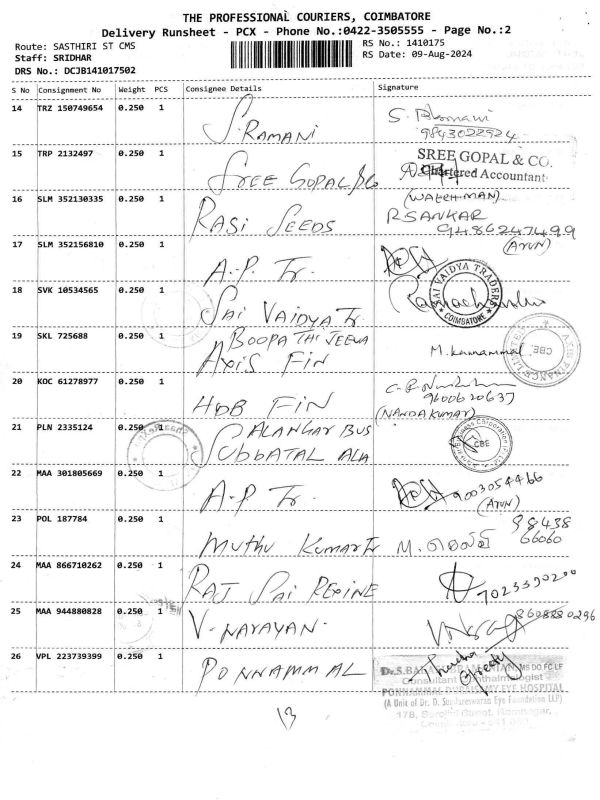 THE PROFESSIONAL COURIERS, COIMBATORE
Delivery Runsheet - PCX - Phone No.:0422-3505555 - Page No.:2
Route: SASTHIRI ST CMS
Staff: SRIDHAR
DRS No.: DCJB141017502
RS No.: 1410175
RS Date: 09-Aug-2024
S No Consignment No Weight PCS Consignee Details Signature
14 TRZ 150749654 0.250 1 S. RAMANI
9843022924
15 TRP 2132497 0.250 1 SREE GOPAL & Co SREE GOPAL & CO.
Chartered Accountant
(WATCHMAN)
16 SLM 352130335 0.250 1 RASI SEEDS R SANKAR
9486247499
17 SLM 352156810 0.250 1 A.P. Tr. (ARUN)
18 SVK 10534565 0.250 1 SAI VAIDYA Tr. Ramachandra
SAI VAIDYA TRADERS
COIMBATORE
19 SKL 725688 0.250 1 BOOPATHI JEEVA
AXIS FIN M. Kamammal
AXIS FINANCE LIMITED
CBE.
20 KOC 61278977 0.250 1 HDB FIN
9600620637
(NANDA KUMAR)
21 PLN 2335124 0.250 1 ALANGAR BUS
SUBBATAL ALA
CBE
22 MAA 301805669 0.250 1 A.P Tr. 9003054466
(ARUN)
23 POL 187784 0.250 1 MUTHU KUMAR Tr M. செல்வி 98438
66060
24 MAA 866710262 0.250 1 RAJ SAI REGINE 7023390200
25 MAA 944880828 0.250 1 V. NARAYAN. 8608880296
26 VPL 223739399 0.250 1 PONNAMMAL
MS DO FC LF
Consultant Ophthalmologist
PONNAMMAL DURAISAMY EYE HOSPITAL
(A Unit of Dr. D. Sundareswaran Eye Foundation LLP)
13